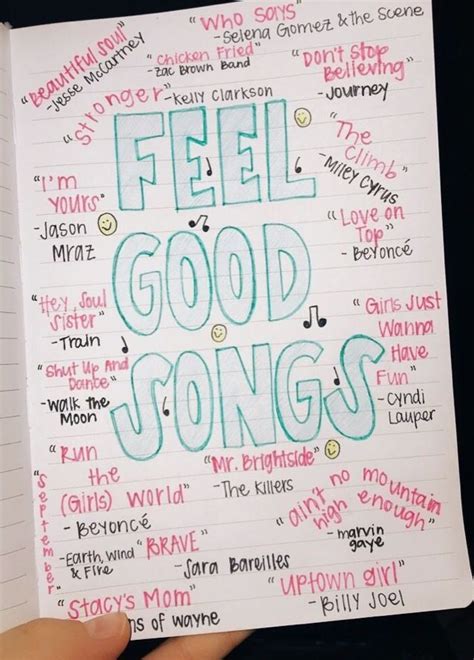 "Who Says"
- Selena Gomez & the Scene
"Beautiful Soul"
- Jesse McCartney
"Chicken Fried"
- Zac Brown Band
"Don't Stop
Believing"
- Journey
"Stronger"
- Kelly Clarkson
FEEL
GOOD
SONGS
"The
Climb"
- Miley Cyrus
"I'm
Yours"
- Jason
Mraz
"Love on
Top"
- Beyoncé
"Hey, Soul
Sister"
- Train
"Girls Just
Wanna
Have
Fun"
- Cyndi
Lauper
"Shut Up And
Dance"
- Walk the
Moon
"Run
the
(Girls) World"
- Beyoncé
"Mr. Brightside"
- The Killers
"ain't no mountain
high enough"
- marvin
gaye
"September"
- Earth, Wind
& Fire
"BRAVE"
- Sara Bareilles
"Uptown girl"
- Billy Joel
"Stacy's Mom"
ns of wayne